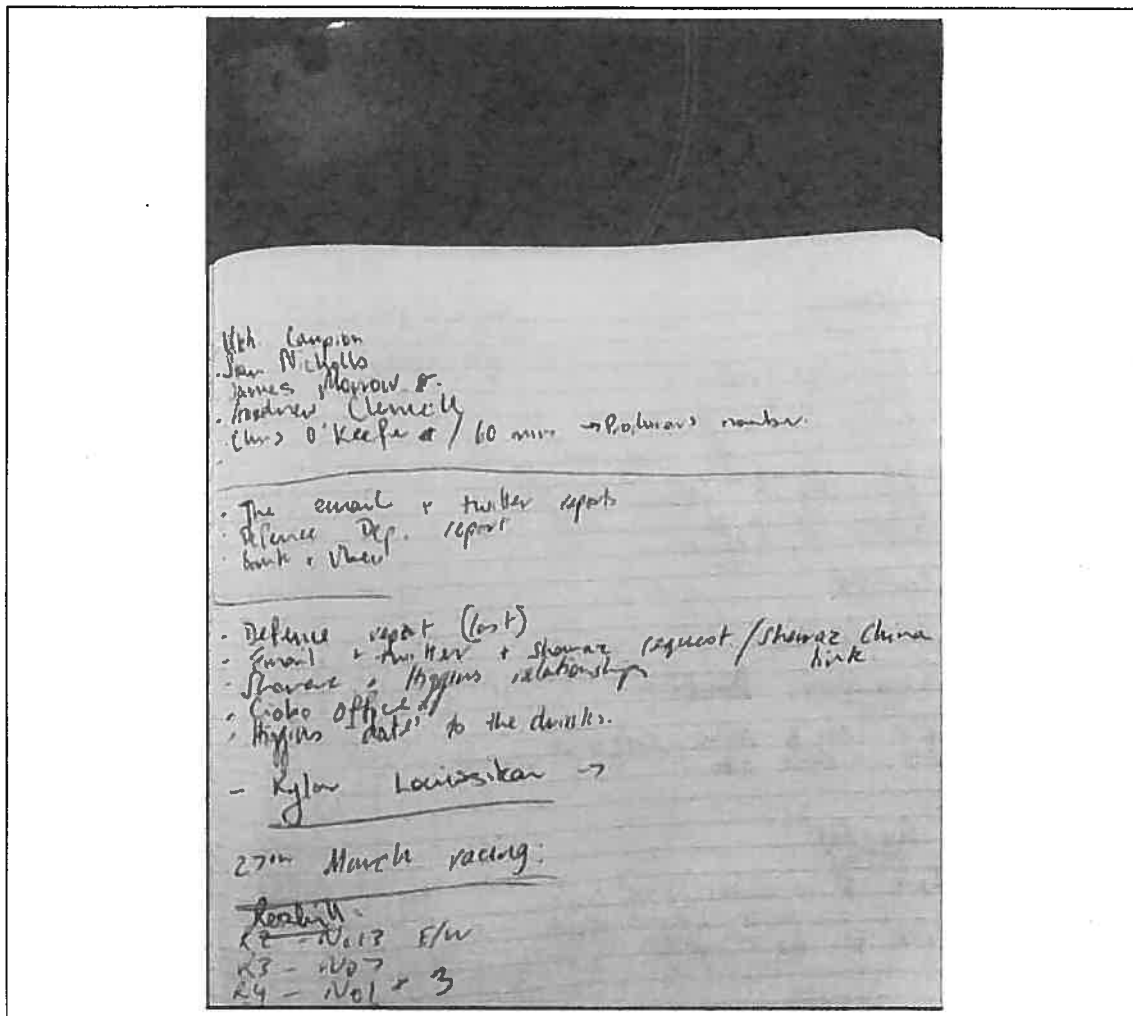 Campion
Sean Nicholls
James Morrow
Andrew Clennell
Chris O'Keefe / 60 min → Producers number.
· The email + twitter reports
· Defence Dep. report
· Drink +
· Defence report (lost)
· Email + twitter + Sharaz request / Sharaz China link
· Sharaz + Higgins relationship
· office
· Higgins 'date' to the drinks.
- →
27th March racing:
Rosehill
R2 - No13 E/W
R3 - No7
R4 - No1 + 3